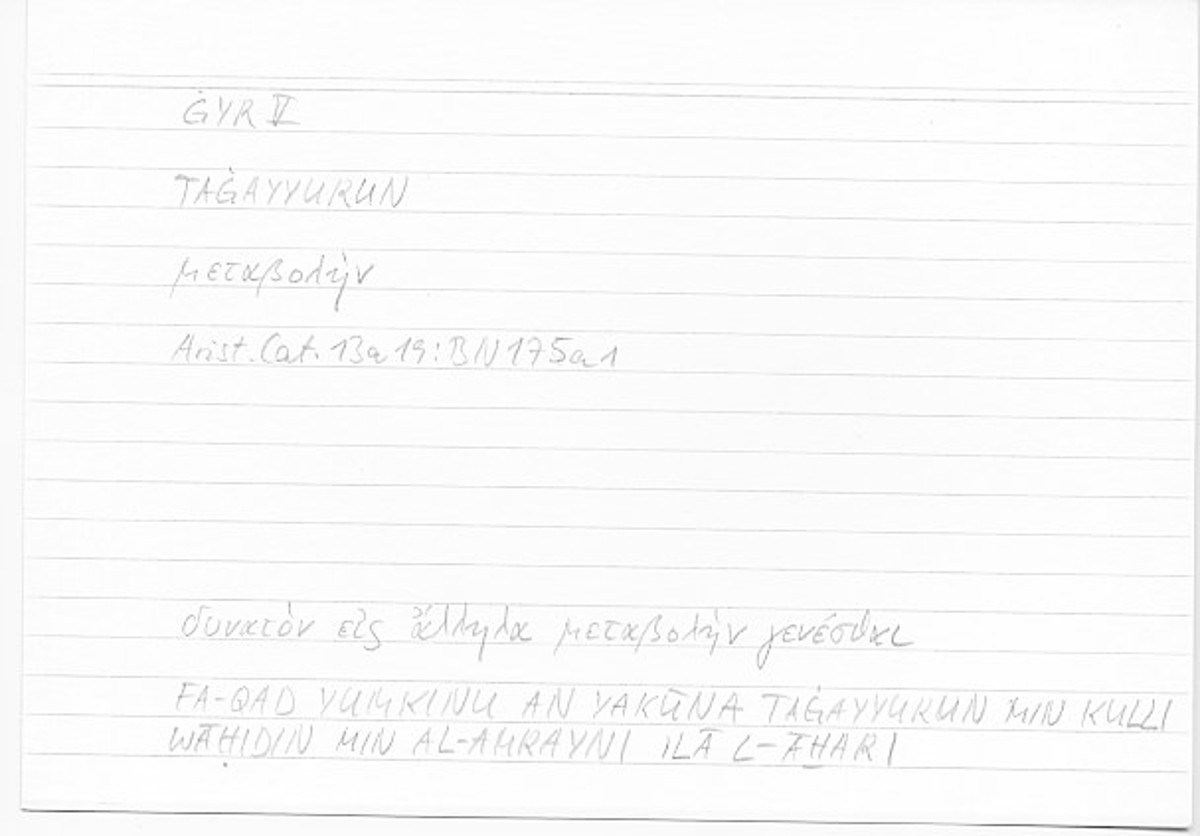 ĠYR V
TAĠAYYURUN
μεταβολὴν
Arist. Cat. 13a19: BN 175a1
δυνατὸν εἰς ἄλληλα μεταβολὴν γενέσθαι
FA-QAD YUMKINU AN YAKŪNA TAĠAYYURUN MIN KULLI
WĀḤIDIN MIN AL-AMRAYNI ILĀ L-ĀḪARI